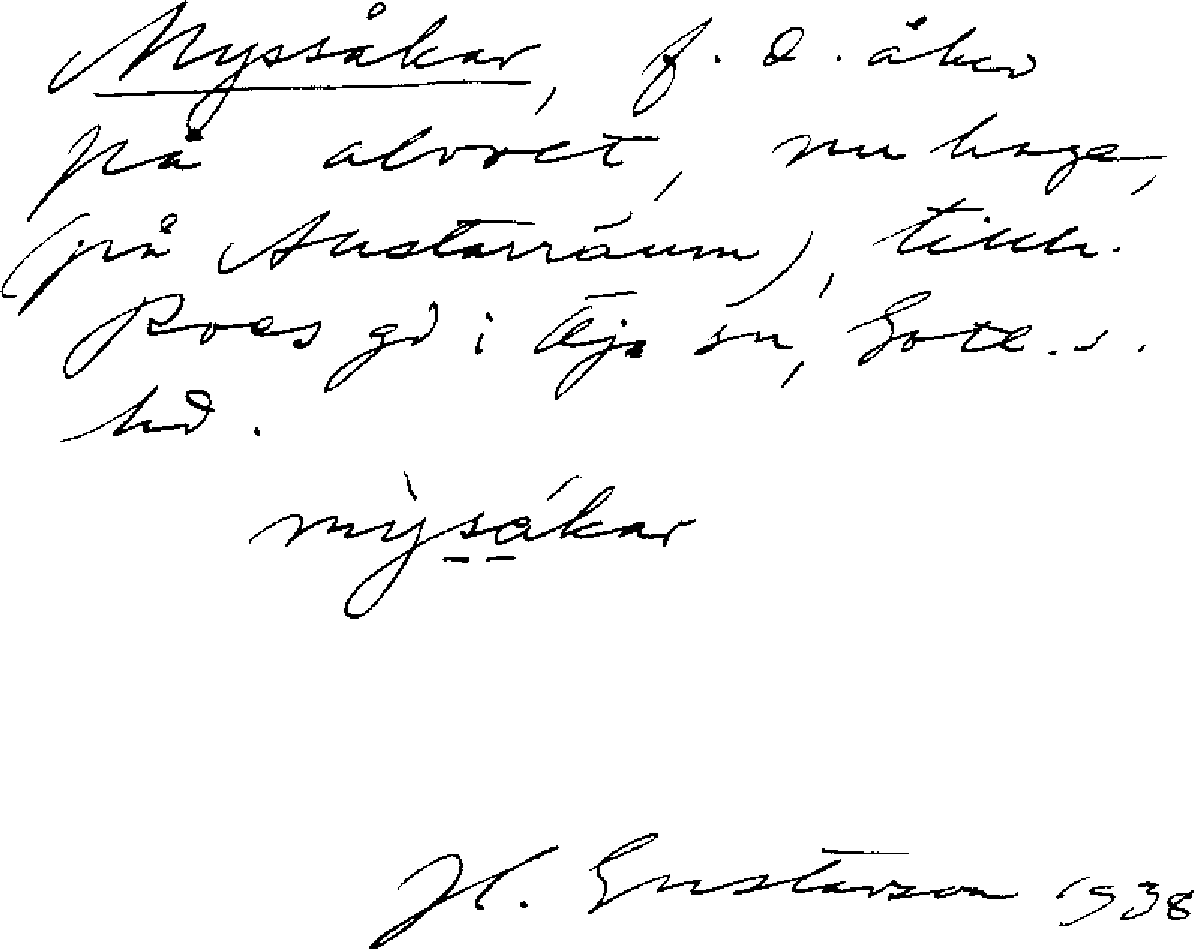 Myssåkar, f. d. åker
på alvret, nu hage,
(på Austarráum), tillh.
Roes gd i Öja sn, Gote. s.
hd.
mỳsákar
H. Gustavson 1938